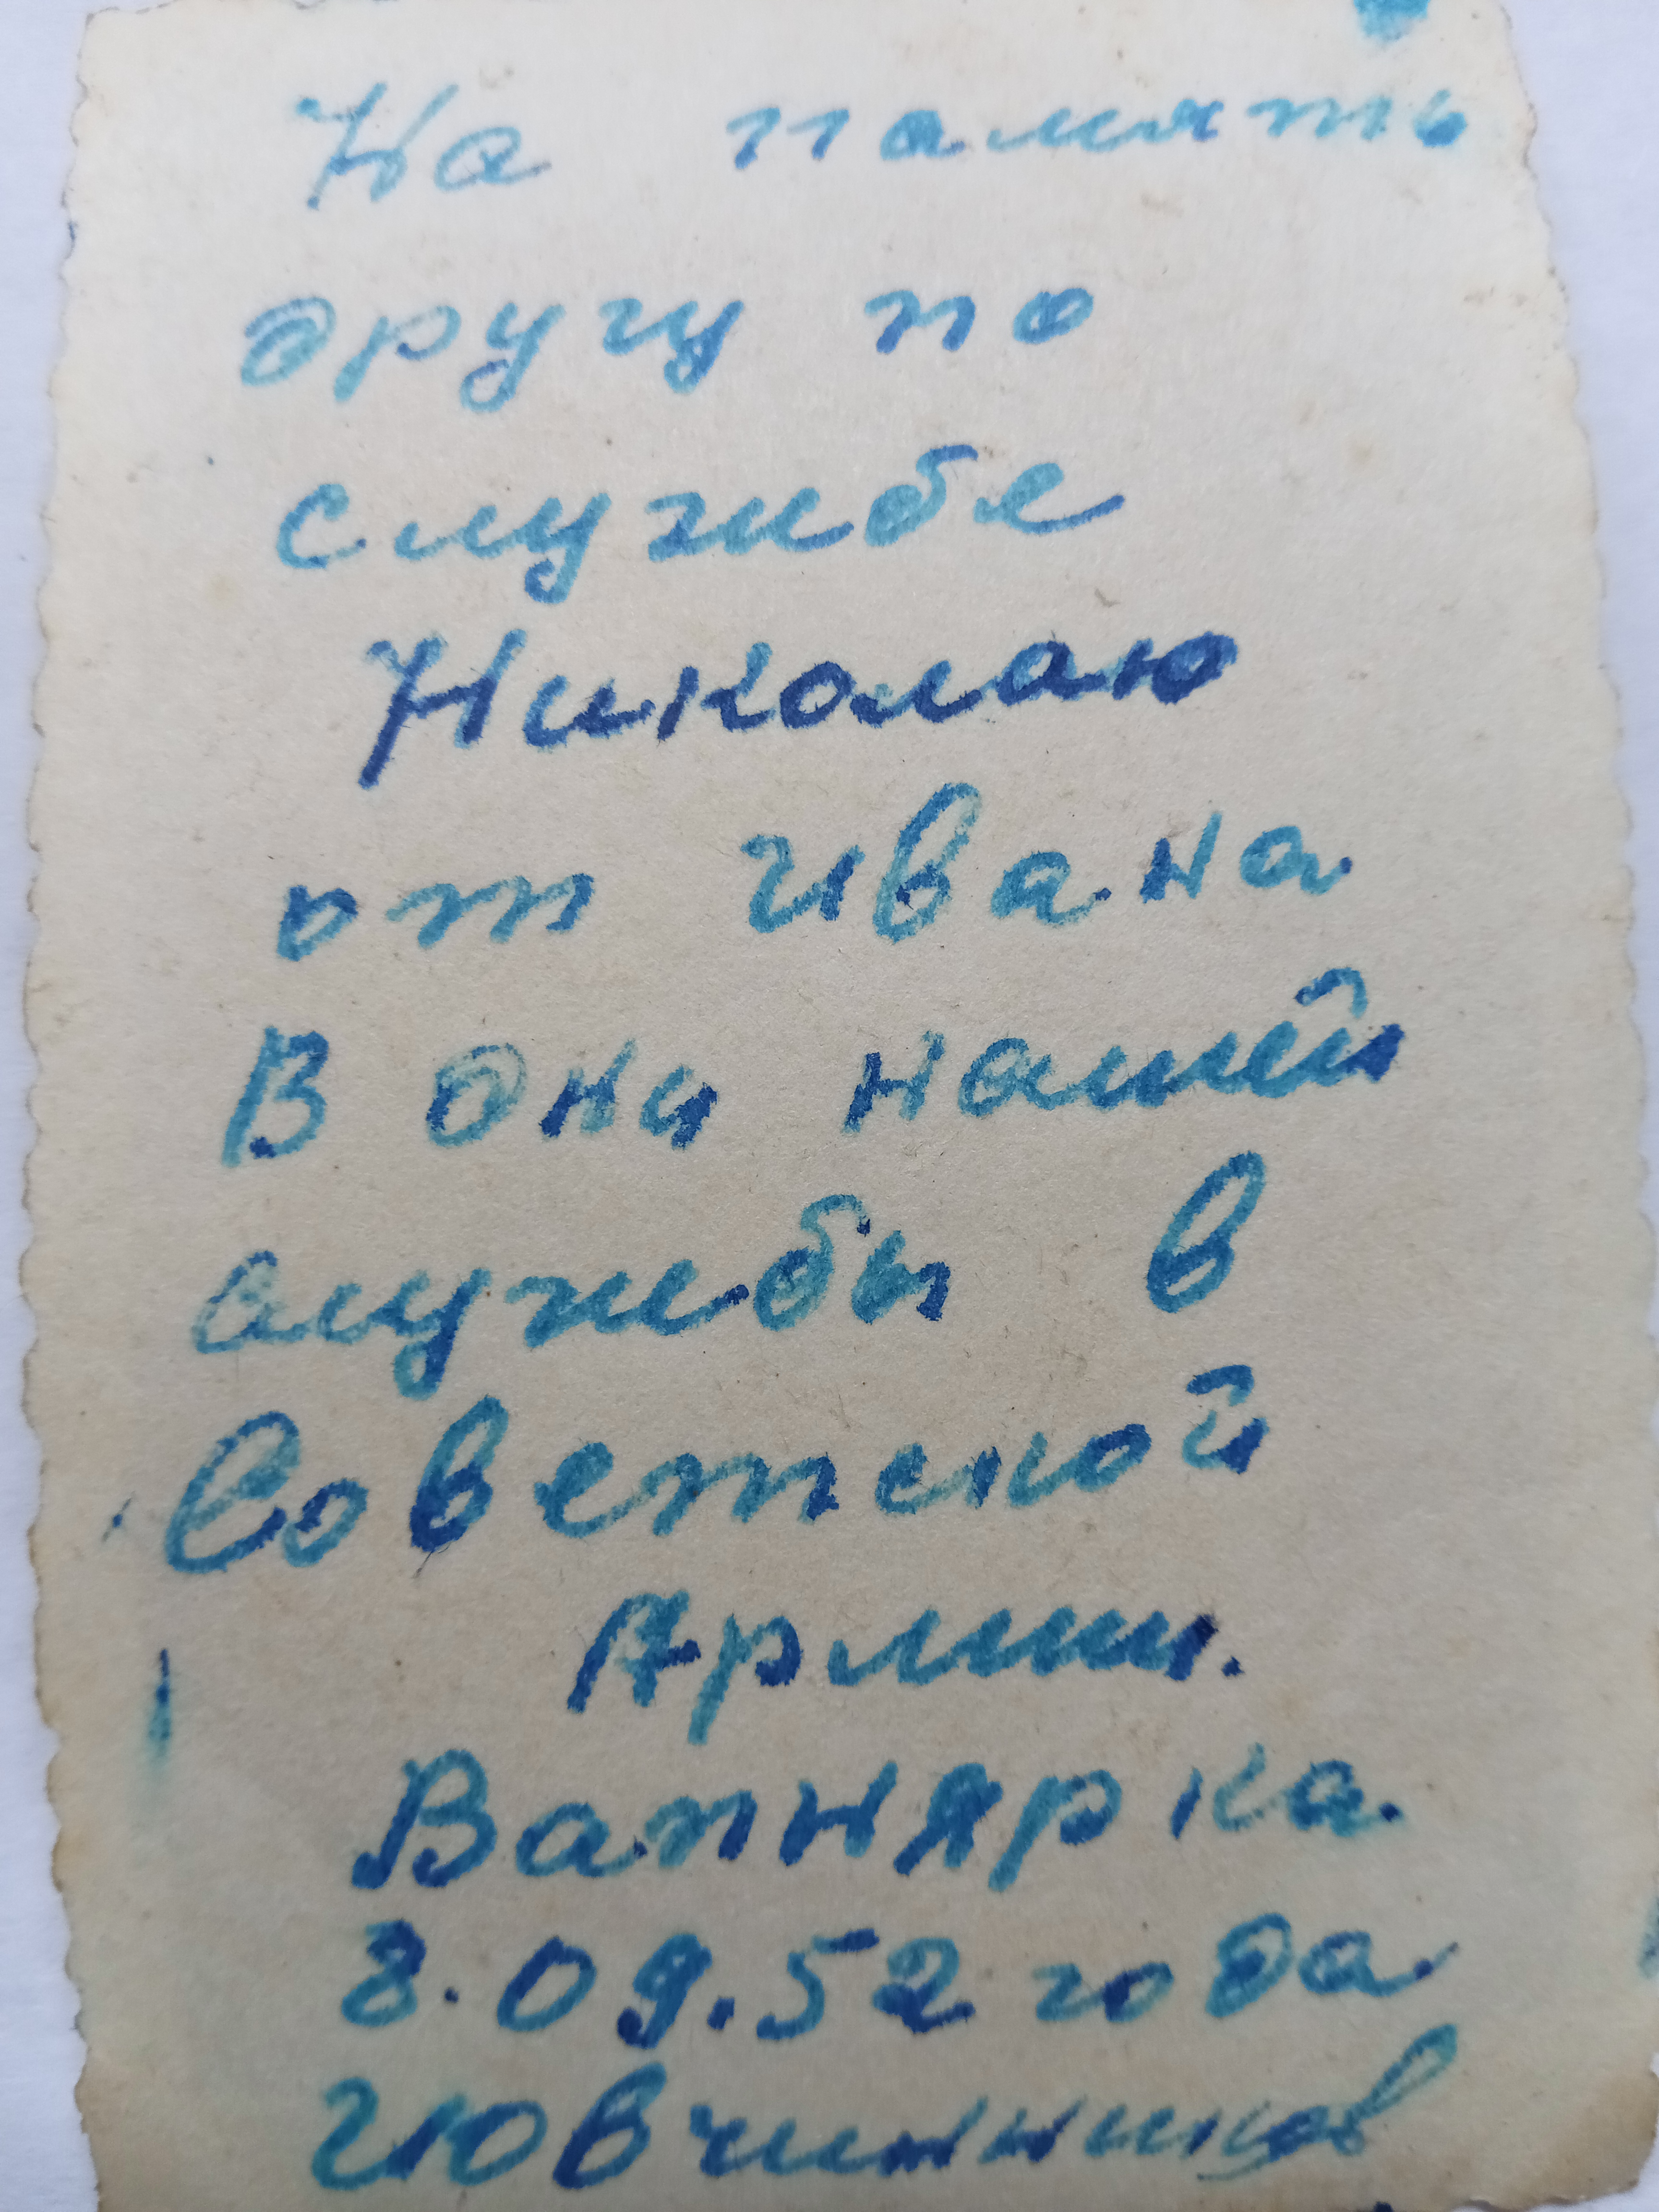 На память
другу по
службе
Николаю
от Ивана
В дни нашей
службы в
Советской
Армии.
Вапнярка.
8.09.52 года
ИОвчинников